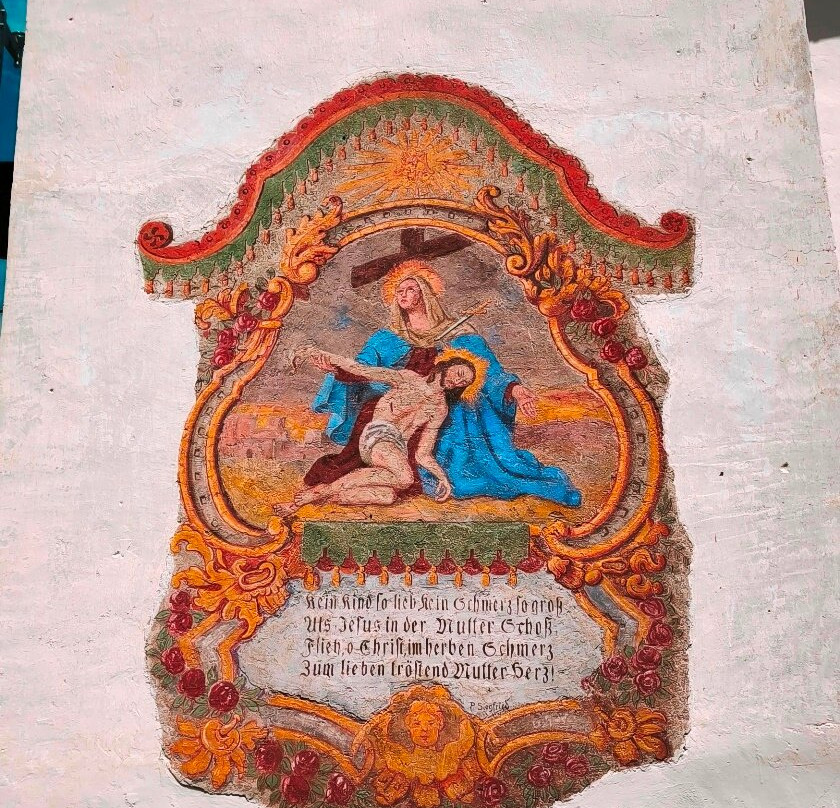 Kein Kind so lieb Kein Schmerz so groß
Als Jesus in der Mutter Schoß.
Flieh, o Christ, im herben Schmerz
Zum lieben tröstend Mutter Herz!
P. Siegfried